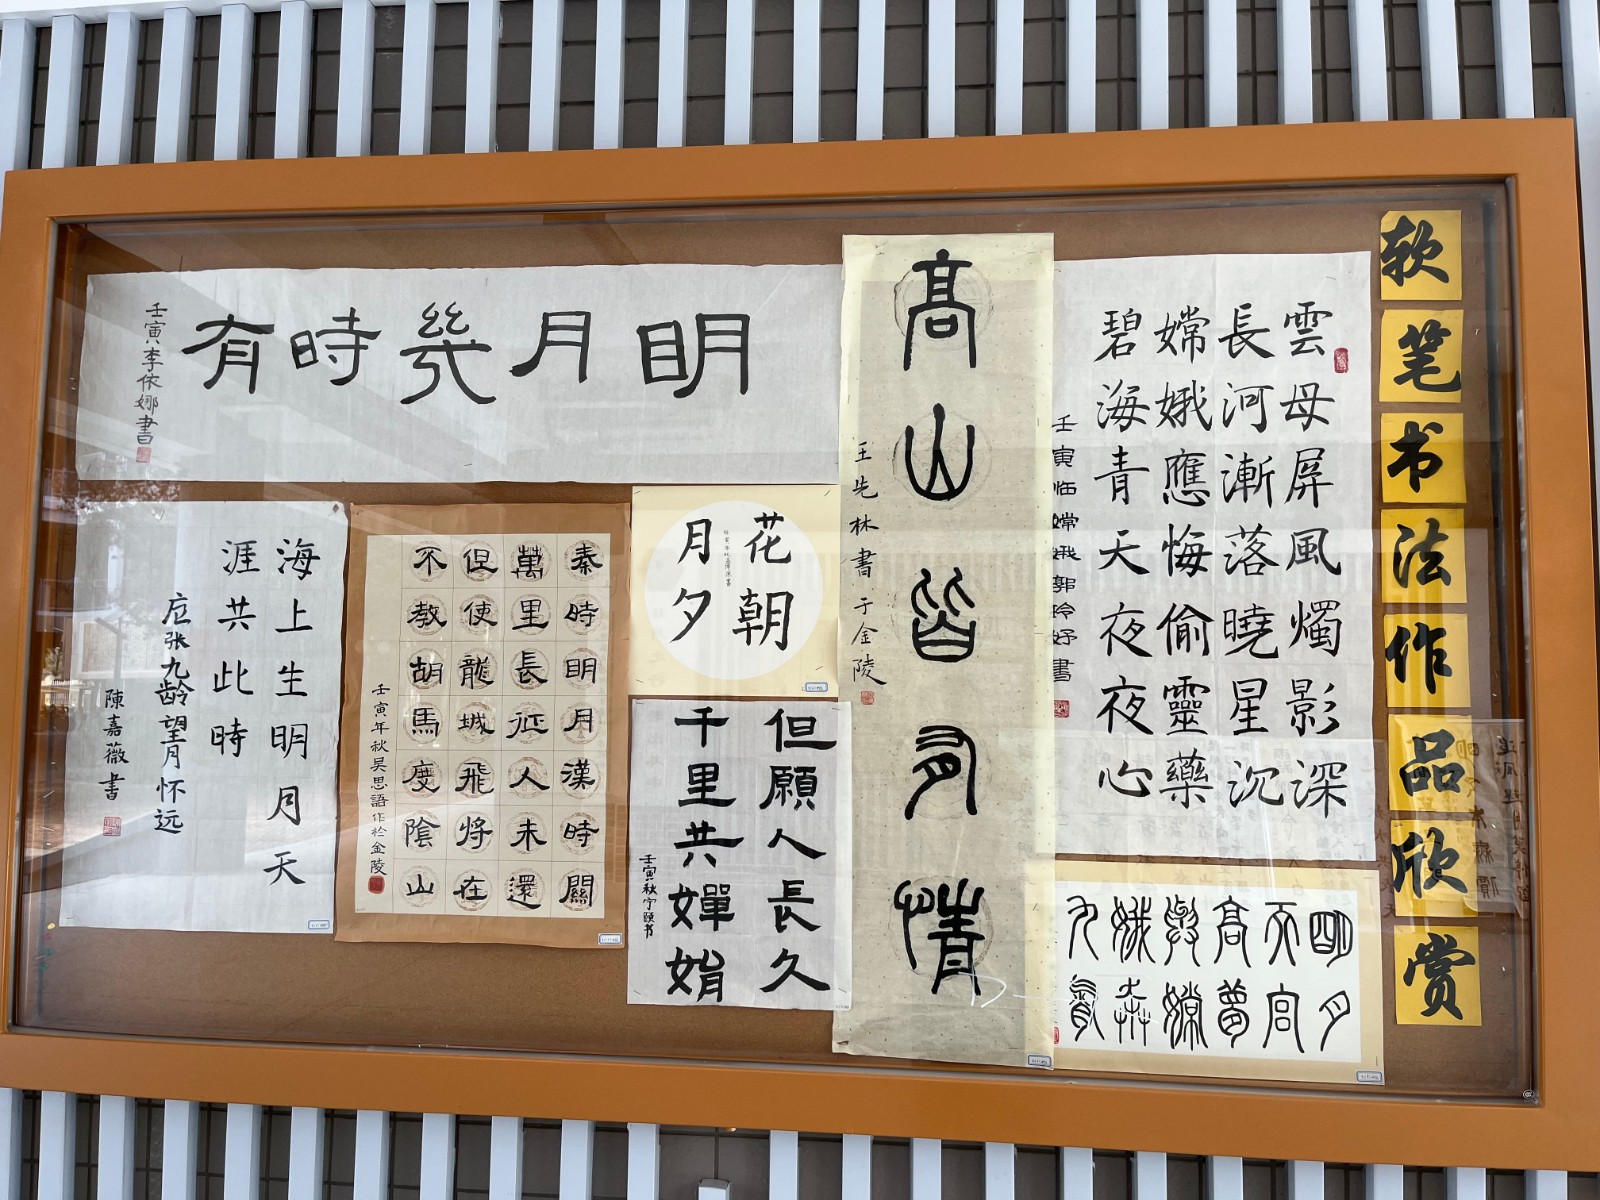 软笔书法作品欣赏
雲母屏風燭影深
長河漸落曉星沉
嫦娥應悔偷靈藥
碧海青天夜夜心
壬寅临嫦娥郭玲妤書
明月
天宮
高夢
與嫦
娥
九
高山皆有情
王先林書于金陵
明月幾時有
壬寅李依娜書
花朝
月夕
但願人長久
千里共嬋娟
壬寅秋宇頤书
秦時明月漢時關
萬里長征人未還
但使龍城飛將在
不教胡馬度陰山
壬寅年秋吴思語作於金陵
海上生明月天
涯共此時
张九龄望月怀远
陳嘉薇書